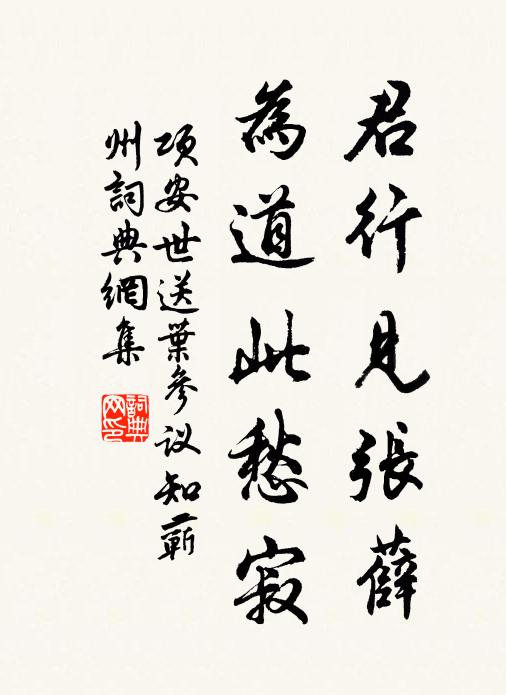 君行見張薛
為道此愁寂
項安世送葉參议知蘄
州詞典網集
詞典网印